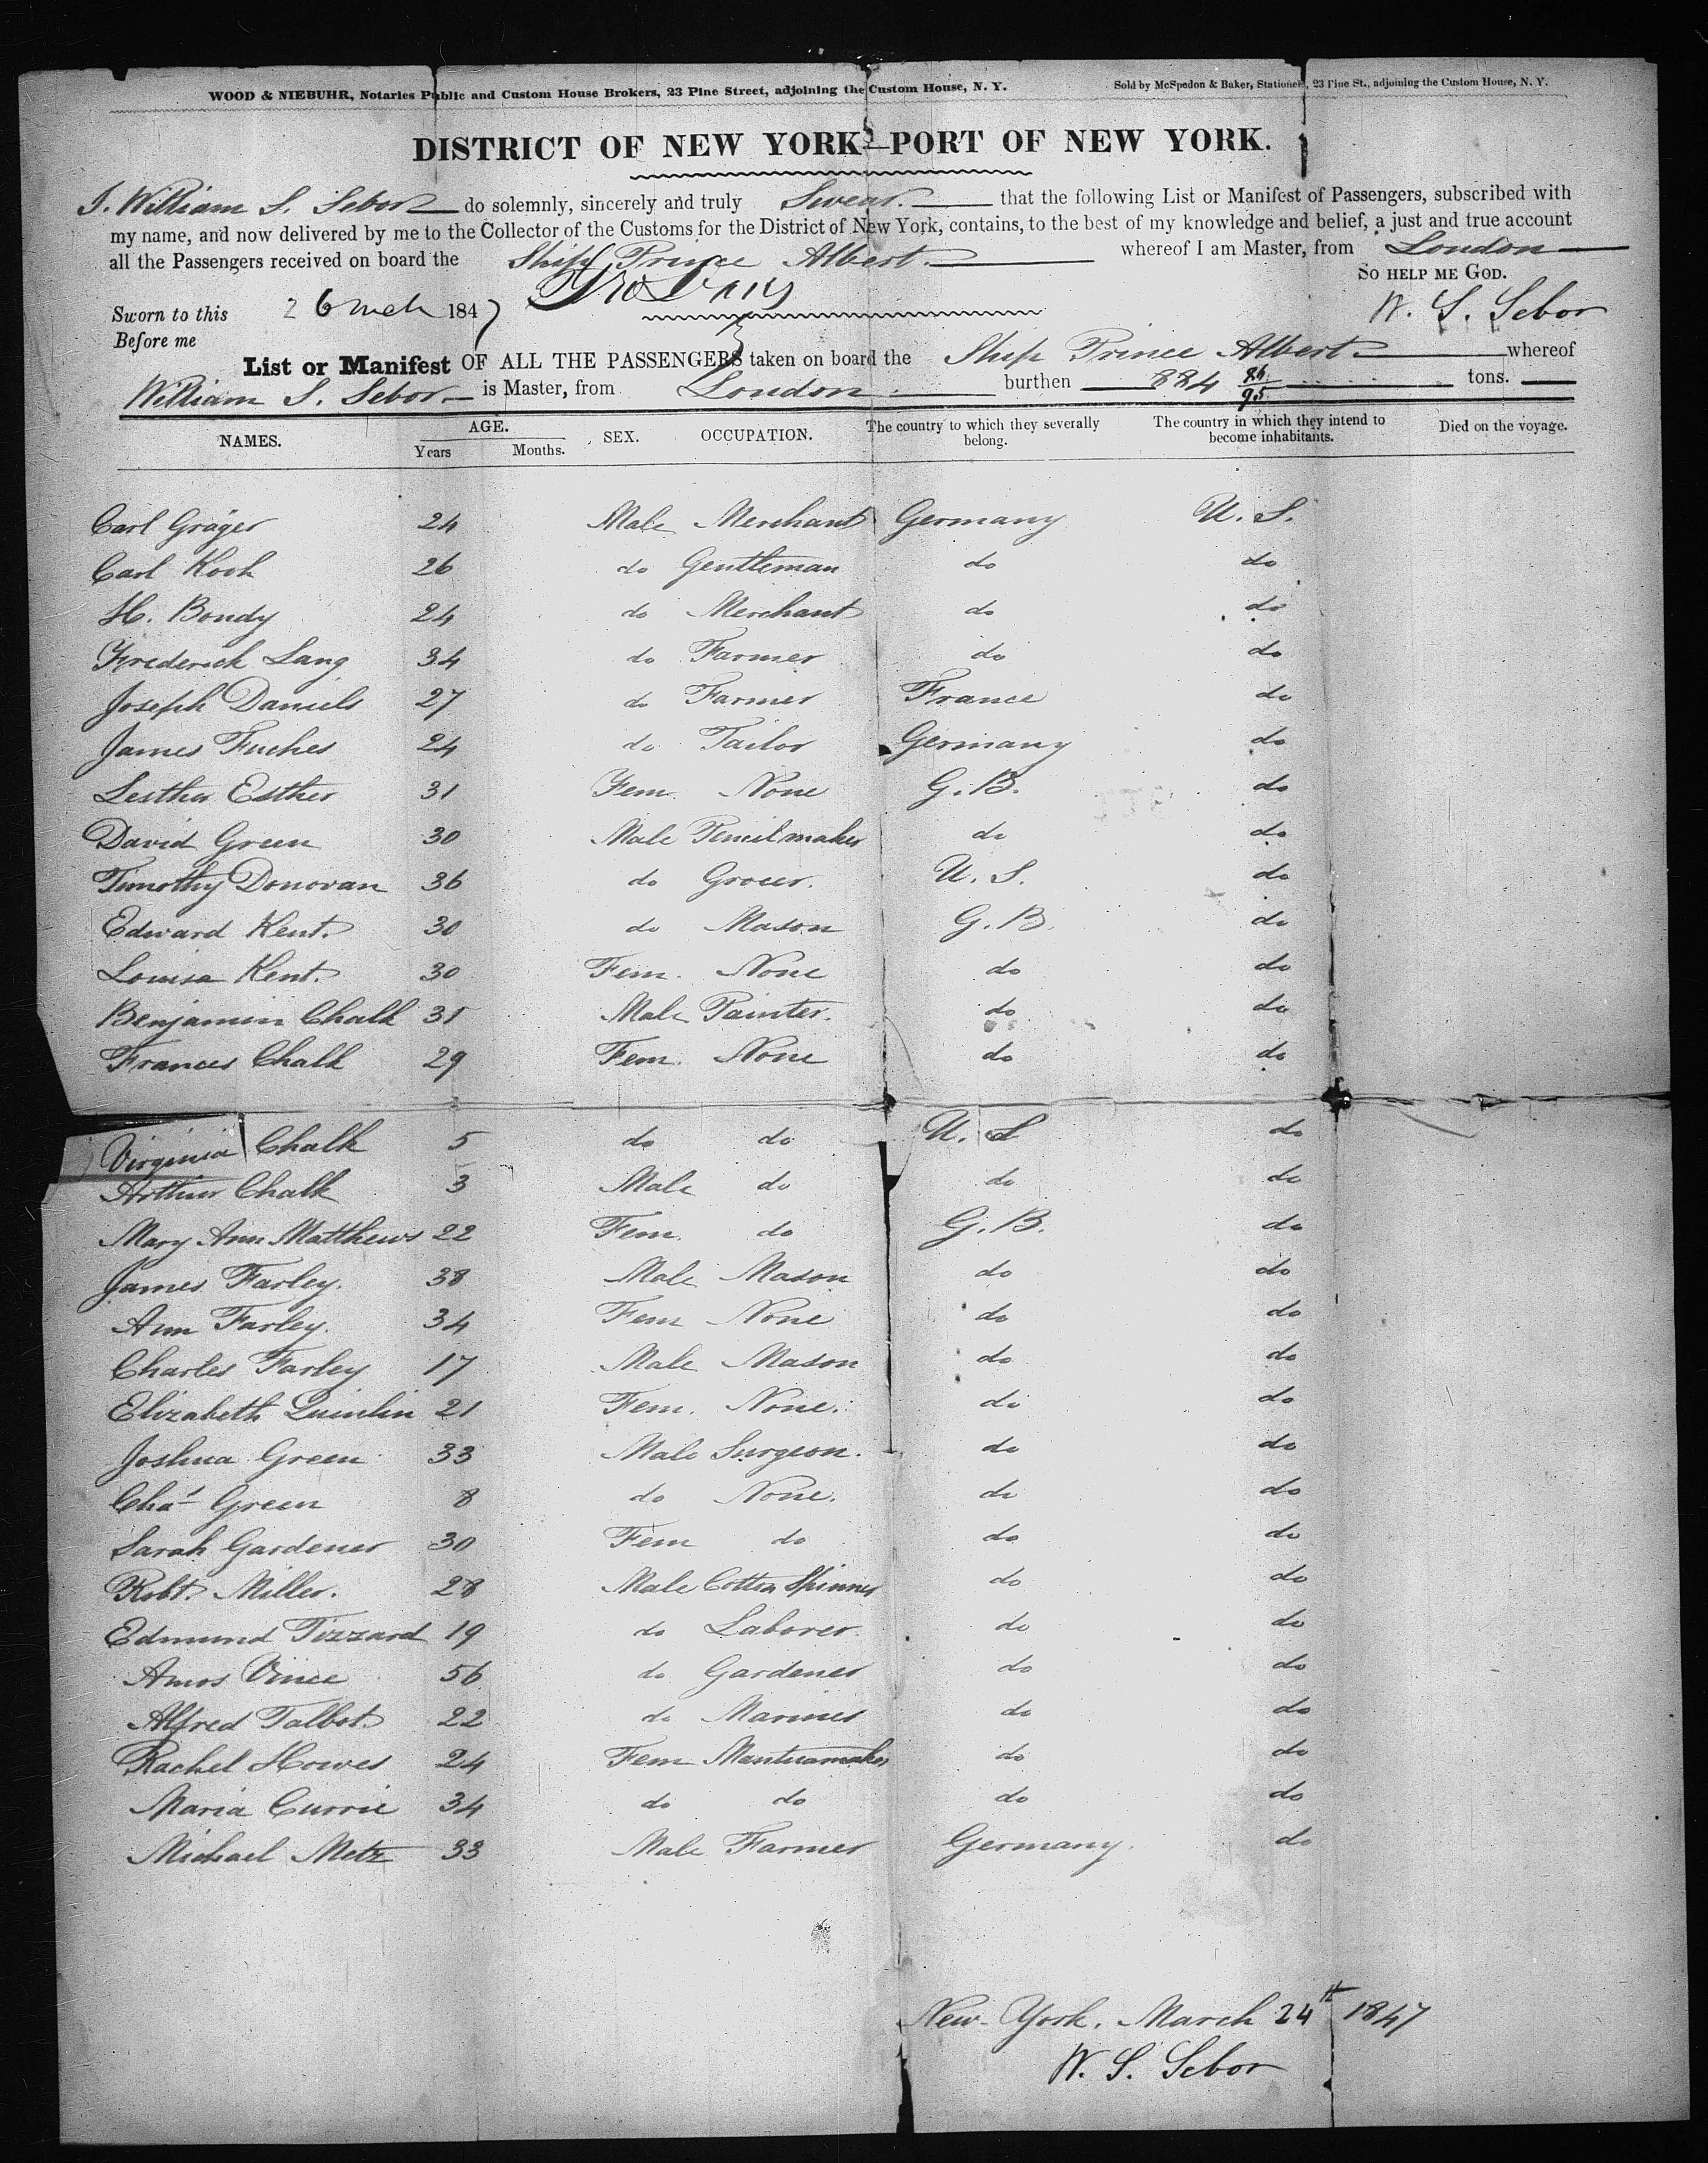 WOOD & NIEBUHR, Notaries Public and Custom House Brokers, 23 Pine Street, adjoining the Custom House, N. Y. Sold by McSpedon & Baker, Stationers, 23 Pine St., adjoining the Custom House, N. Y.
DISTRICT OF NEW YORK—PORT OF NEW YORK.
I. William S. Sebor do solemnly, sincerely and truly Swear. that the following List or Manifest of Passengers, subscribed with
my name, and now delivered by me to the Collector of the Customs for the District of New York, contains, to the best of my knowledge and belief, a just and true account
all the Passengers received on board the Ship Prince Albert. whereof I am Master, from London
SO HELP ME GOD.
Sworn to this 26 Mch 1847 W. S. Sebor
Before me
List or Manifest OF ALL THE PASSENGERS taken on board the Ship Prince Albert whereof
William S. Sebor is Master, from London burthen 884 86/95 tons.
NAMES. AGE. Years Months. SEX. OCCUPATION. The country to which they severally belong. The country in which they intend to become inhabitants. Died on the voyage.
Carl Gräger 24 Male Merchant Germany U. S.
Carl Koch 26 do Gentleman do do
H. Bondy 24 do Merchant do do
Frederick Lang 34 do Farmer do do
Joseph Daniels 27 do Farmer France do
James Fuches 24 do Tailor Germany do
Lestha Esther 31 Fem. None G. B. do
David Green 30 Male Pencil maker do do
Timothy Donovan 36 do Grocer. U. S. do
Edward Kent. 30 do Mason G. B. do
Louisa Kent. 30 Fem. None do do
Benjamin Chalk 31 Male Painter. do do
Frances Chalk 29 Fem. None do do
Virginia Chalk 5 do do U. S do
Arthur Chalk 3 Male do do do
Mary Ann Matthews 22 Fem. do G. B. do
James Farley. 38 Male Mason do do
Ann Farley. 34 Fem None do do
Charles Farley 17 Male Mason do do
Elizabeth Quinlin 21 Fem. None. do do
Joshua Green 33 Male Surgeon. do do
Chas Green 8 do None. do do
Sarah Gardener 30 Fem do do do
Robt. Miller. 28 Male Cotton Spinner do do
Edmund Tizzard 19 do Laborer. do do
Amos Vince 56 do Gardener do do
Alfred Talbot 22 do Mariner do do
Rachel Howes 24 Fem Mantuamaker do do
Maria Currie 34 do do do do
Michael Metz 33 Male Farmer Germany. do
New-York. March 24th 1847
W. S. Sebor